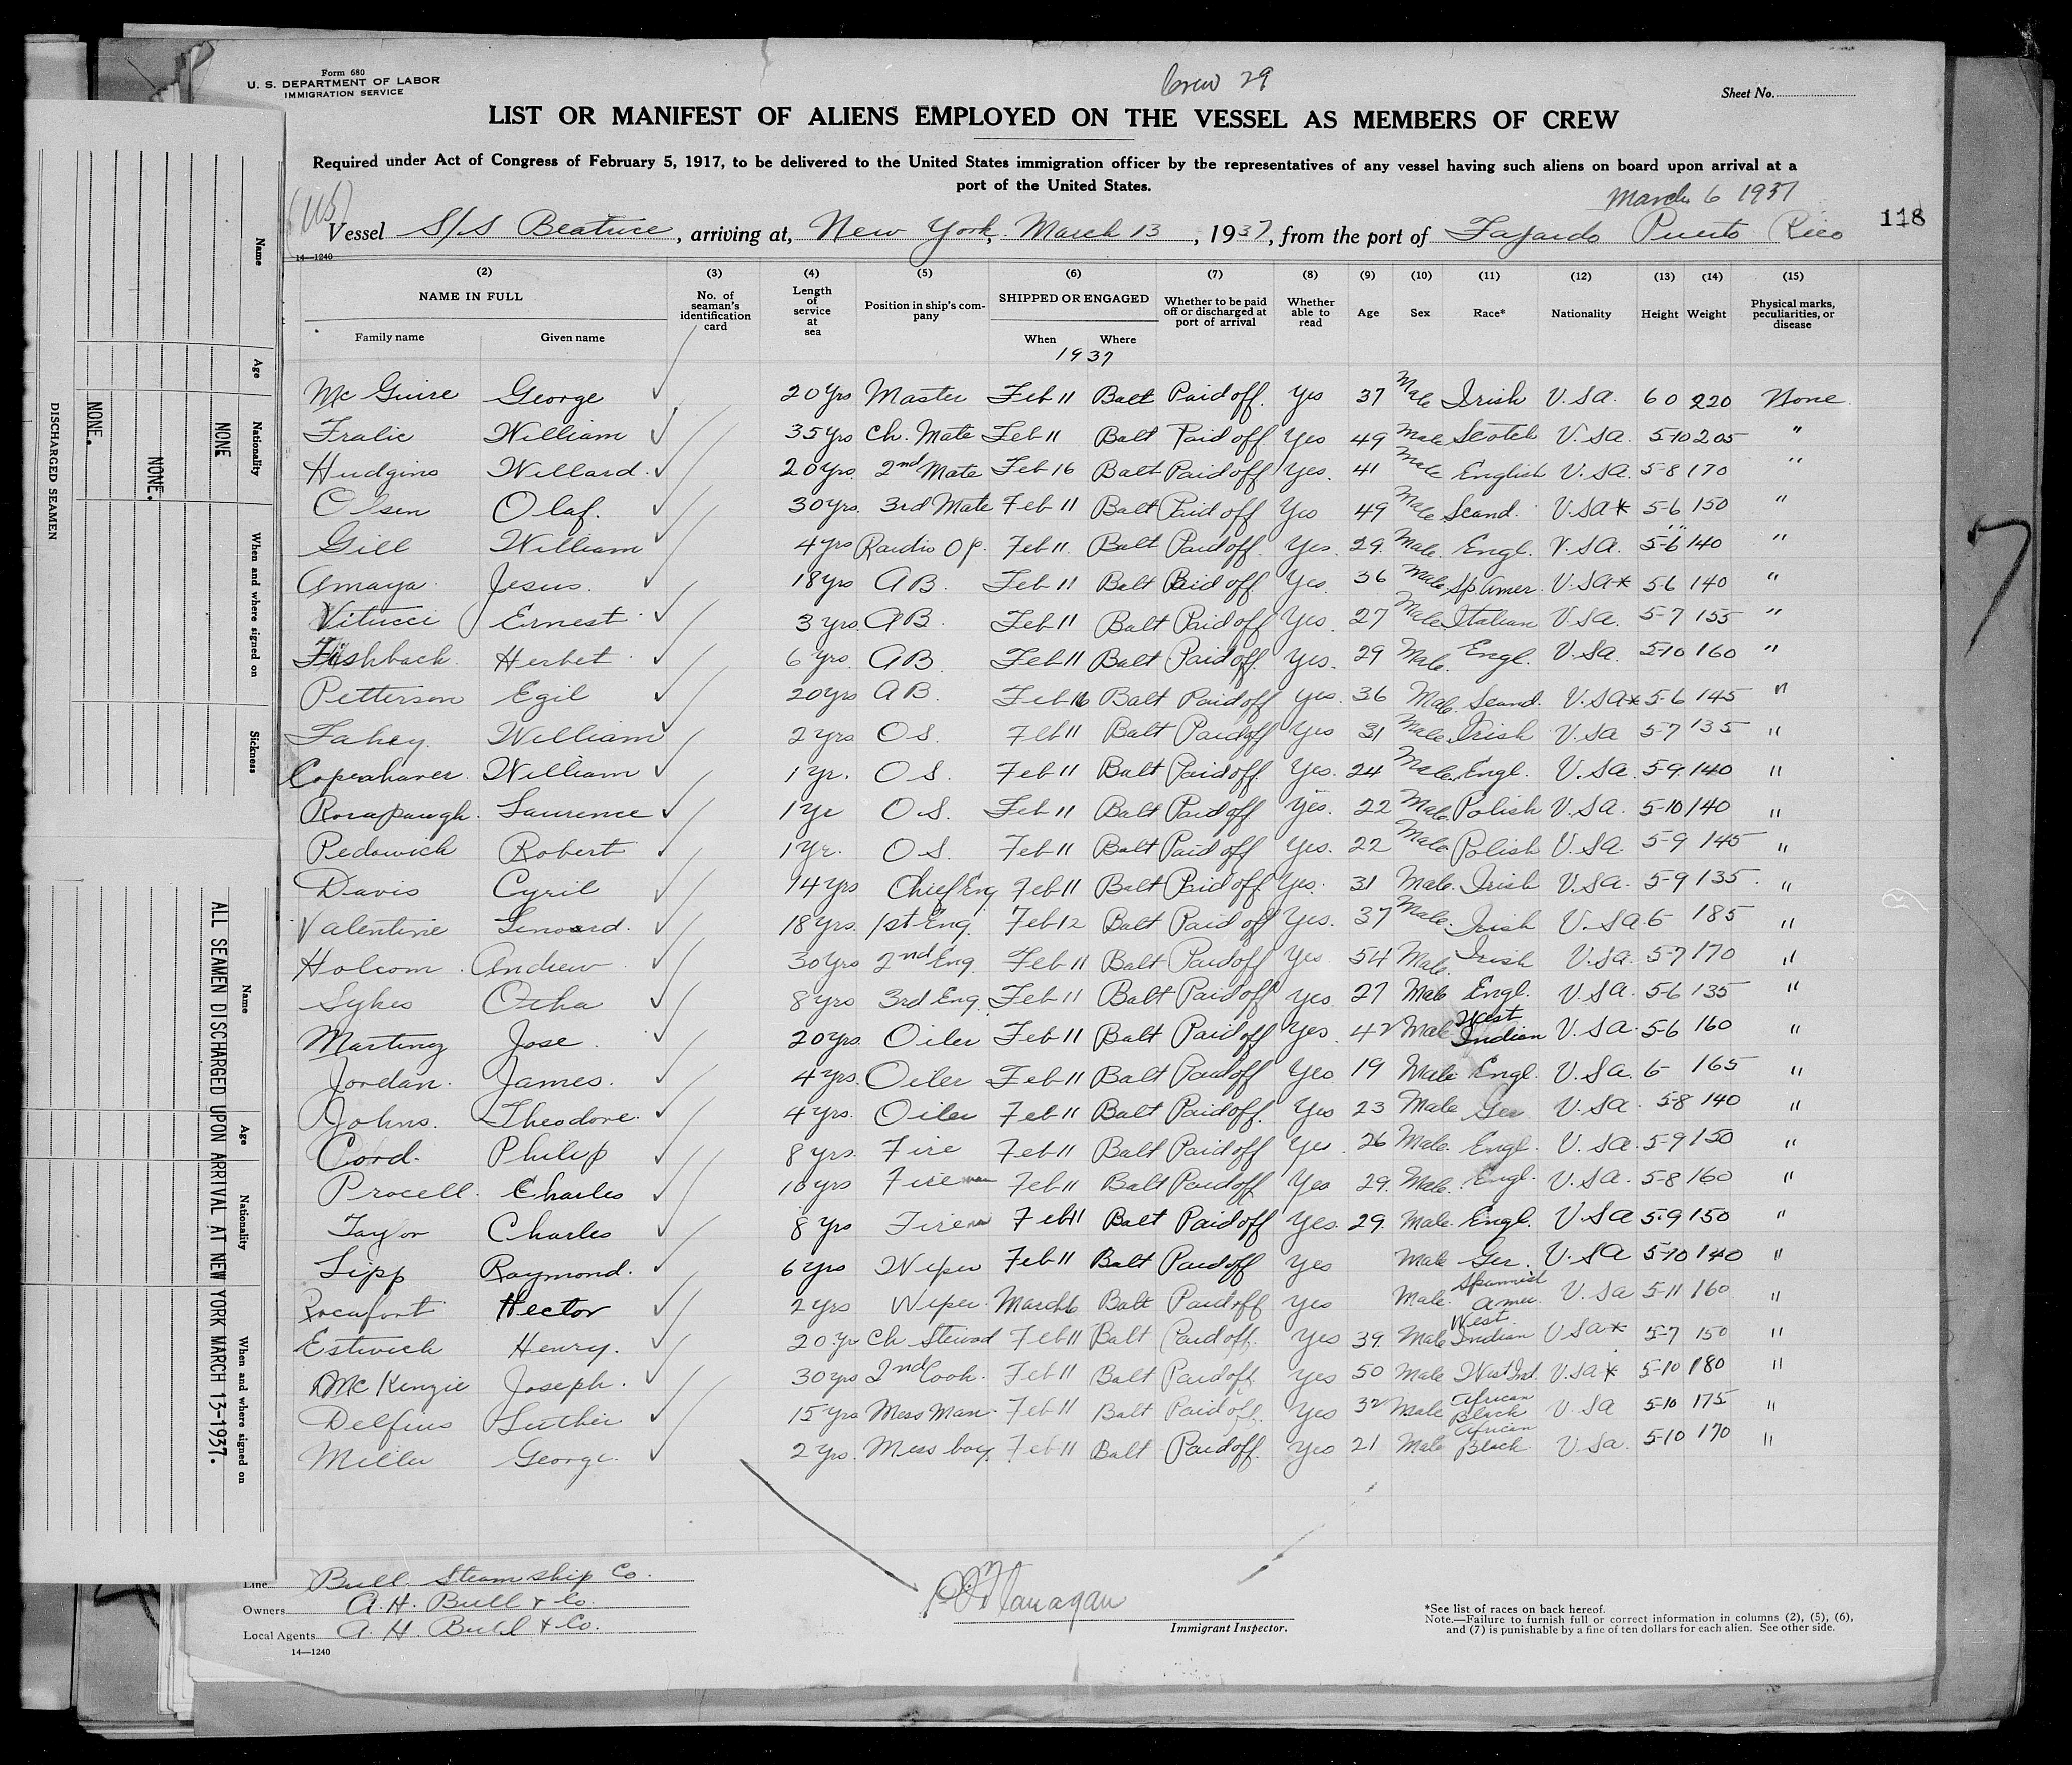 Form 680
U. S. DEPARTMENT OF LABOR
IMMIGRATION SERVICE
Crew 29
Sheet No.
LIST OR MANIFEST OF ALIENS EMPLOYED ON THE VESSEL AS MEMBERS OF CREW
Required under Act of Congress of February 5, 1917, to be delivered to the United States immigration officer by the representatives of any vessel having such aliens on board upon arrival at a
port of the United States.
March 6 1937
(US)
Vessel S/S Beatrice, arriving at, New York, March 13, 1937, from the port of Fajardo Puerto Rico
118
14—1240
(2) (3) (4) (5) (6) (7) (8) (9) (10) (11) (12) (13) (14) (15)
NAME IN FULL
Family name Given name
No. of seaman's identification card
Length of service at sea
Position in ship's company
SHIPPED OR ENGAGED
When Where
1937
Whether to be paid off or discharged at port of arrival
Whether able to read
Age Sex Race* Nationality Height Weight
Physical marks, peculiarities, or disease
Mc Guire George 20 yrs Master Feb 11 Balt Paid off. Yes 37 Male Irish U.S.A. 6 0 220 None
Fralic William 35 yrs Ch. Mate Feb 11 Balt Paid off Yes 49 Male Scotch U.S.A. 5-10 205 "
Hudgins Willard 20 yrs. 2nd Mate Feb 16 Balt Paid off Yes. 41 Male English U.S.A. 5-8 170 "
Olsen Olaf. 30 yrs. 3rd Mate Feb 11 Balt Paid off Yes 49 Male Scand. U.S.A* 5-6 150 "
Gill William 4 yrs Raidio Op. Feb 11 Balt Paid off Yes. 29. Male. Engl. U.S.A. 5-6 140 "
Amaya Jesus. 18 yrs AB. Feb 11 Balt Paid off Yes. 36 Male Sp Amer. U.S.A* 5-6 140 "
Vitucci Ernest 3 yrs. AB. Feb 11 Balt Paid off Yes. 27 Male Italian U.S.A. 5-7 155 "
Fishback Herbet 6 yrs. AB. Feb 11 Balt Paid off. Yes. 29 Male. Engl. U.S.A. 5-10 160 "
Petterson Egil 20 yrs AB. Feb 16 Balt Paid off Yes. 36 Male. Scand. U.S.A* 5-6 145 "
Fahey William 2 yrs O S. Feb 11 Balt Paid off Yes 31 Male Irish U.S.A 5-7 135 "
Copenhaver William 1 yr. O S. Feb 11 Balt Paid off Yes. 24 Male. Engl. U.S.A. 5-9 140 "
Laurence 1 yr O S. Feb 11 Balt Paid off Yes. 22 Male. Polish U.S.A. 5-10 140 "
Pedowich Robert 1 yr. O S. Feb 11 Balt Paid off Yes. 22 Male. Polish U.S.A. 5-9 145 "
Davis Cyril 14 yrs Chief Eng Feb 11 Balt Paid off Yes. 31 Male. Irish U.S.A. 5-9 135. "
Valentine Lenoard. 18 yrs. 1st Eng. Feb 12 Balt Paid off Yes. 37 Male. Irish U.S.A 6- 185 "
Holcom Andrew 30 yrs 2nd Eng. Feb 11 Balt Paid off Yes 54 Male. Irish U.S.A. 5-7 170 "
Sykes Otha 8 yrs 3rd Eng. Feb 11 Balt Paid off Yes 27 Male Engl. U.S.A. 5-6 135 "
Martinez Jose 20 yrs. Oiler Feb 11 Balt Paid off Yes. 42 Male West Indian U.S.A. 5-6 160 "
Jordan. James. 4 yrs. Oiler Feb 11 Balt Paid off Yes 19 Male Engl. U.S.A. 6- 165 "
Johns. Theodore. 4 yrs. Oiler Feb 11 Balt Paid off. Yes 23 Male Ger U.S.A. 5-8 140 "
Cord. Philip 8 yrs. Fire Feb 11 Balt Paid off Yes. 26 Male. Engl. U.S.A. 5-9 150 "
Procell. Charles 10 yrs Fireman Feb 11 Balt Paid off Yes 29. Male. Engl. U.S.A. 5-8 160 "
Taylor Charles 8 yrs Fireman Feb 11 Balt Paid off Yes. 29. Male. Engl. U.S.A 5-9 150 "
Lipp Raymond. 6 yrs Wiper Feb 11 Balt Paid off Yes Male Ger. U.S.A 5-10 140 "
Rocafort Hector 2 yrs Wiper. March 6 Balt Paid off Yes Male. Spanish Amer. U.S.A 5-11 160 "
Estwick Henry. 20 yr Ch Steward Feb 11 Balt Paid off. Yes 39. Male West Indian U.S.A* 5-7 150 "
Mc Kenzie Joseph. 30 yrs 2nd Cook. Feb 11 Balt Paid off. Yes 50 Male West Ind. U.S.A* 5-10 180 "
Delfius Luther 15 yrs Mess Man. Feb 11 Balt Paid off. Yes 32 Male African Black U.S.A 5-10 175 "
Miller George. 2 yrs. Mess boy. Feb 11 Balt Paid off. Yes 21 Male African Black U.S.A. 5-10 170 "
Line Bull Steamship Co.
Owners A. H. Bull & Co.
Local Agents A. H. Bull & Co.
14—1240
Flanagan
Immigrant Inspector.
*See list of races on back hereof.
Note.—Failure to furnish full or correct information in columns (2), (5), (6),
and (7) is punishable by a fine of ten dollars for each alien. See other side.
Name Age Nationality When and where signed on Sickness
NONE
NONE.
NONE.
DISCHARGED SEAMEN
Name Age Nationality When and where signed on
ALL SEAMEN DISCHARGED UPON ARRIVAL AT NEW YORK MARCH 13-1937.